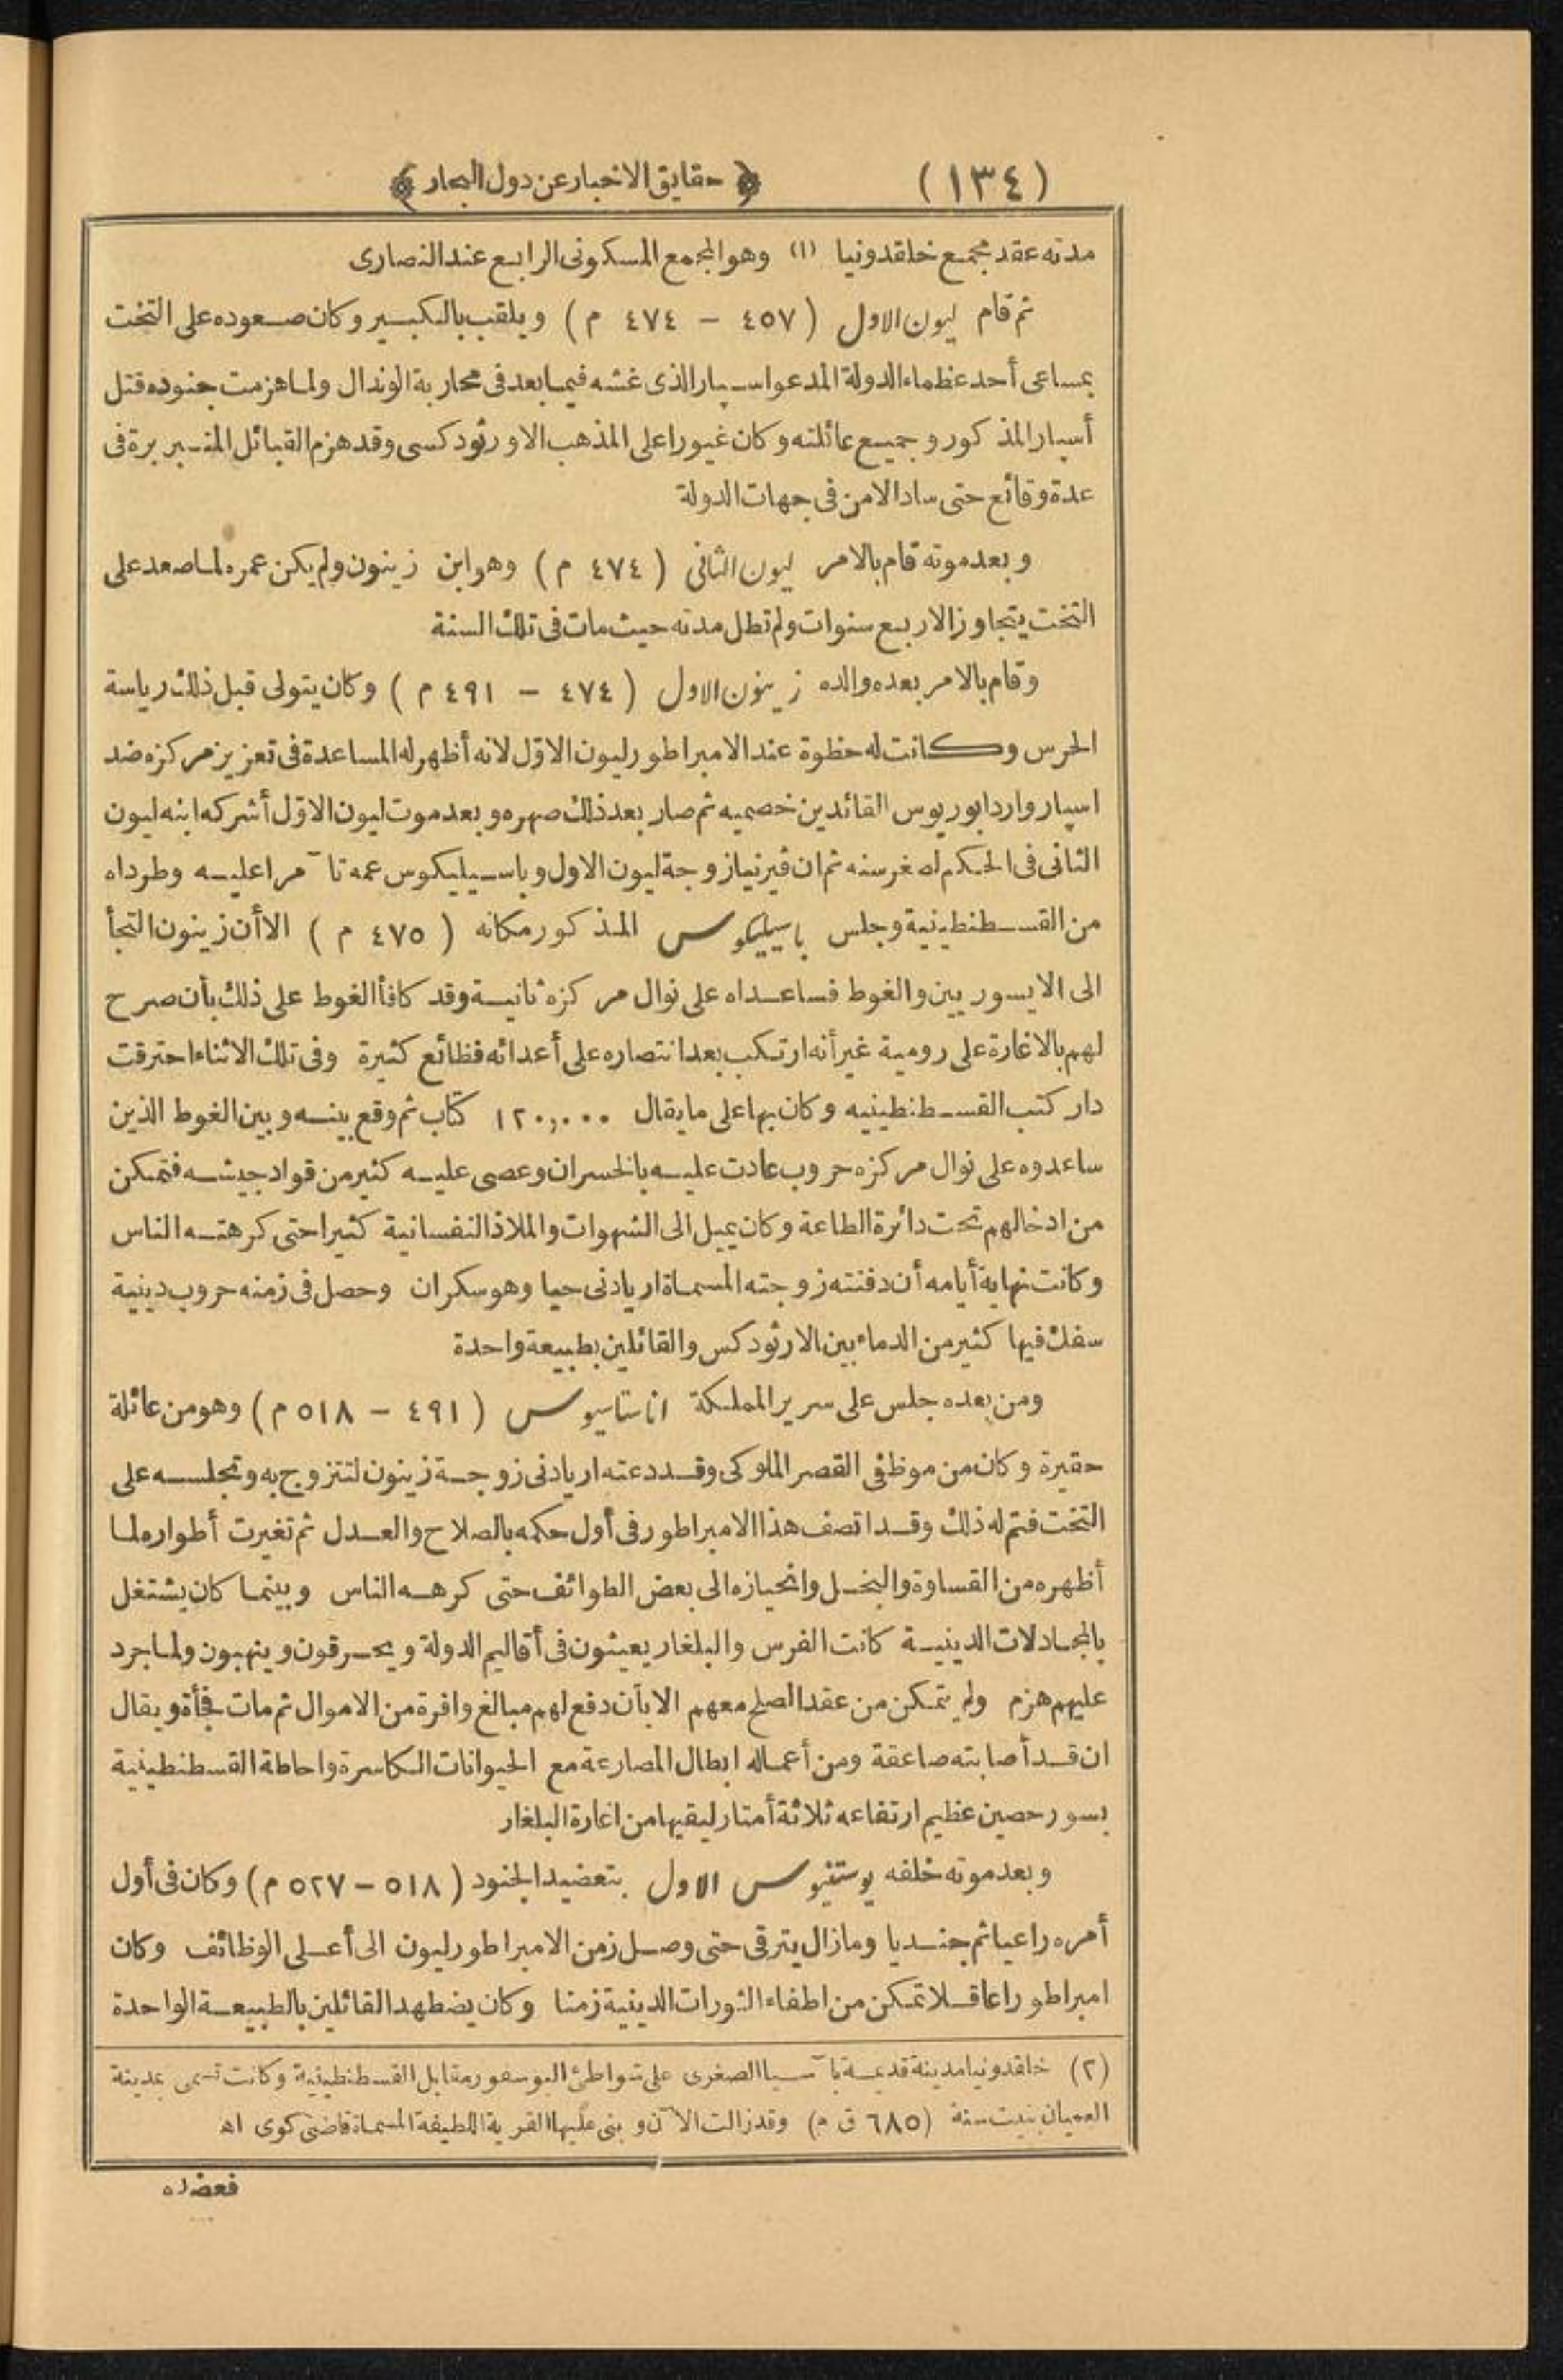 (١٣٤) ﴿ حقايق الاخبار عن دول البحار ﴾
مدته عقد مجمع خلقدونيا (١) وهو المجمع المسكونى الرابع عند النصارى
ثم قام ليون الاول (٤٥٧ – ٤٧٤ م) ويلقب بالكبير وكان صعوده على التخت
بمساعى أحد عظماء الدولة المدعو اسپار الذى غشه فيما بعد فى محاربة الوندال ولما هزمت جنوده قتل
أسپار المذكور وجميع عائلته وكان غيورا على المذهب الاورثودكسى وقد هزم القبائل المتبربرة فى
عدة وقائع حتى ساد الامن فى جهات الدولة
وبعد موته قام بالامر ليون الثانى (٤٧٤ م) وهو ابن زينون ولم يكن عمره لما صعد على
التخت يتجاوز الاربع سنوات ولم تطل مدته حيث مات فى تلك السنة
وقام بالامر بعده والده زينون الاول (٤٧٤ – ٤٩١ م) وكان يتولى قبل ذلك رياسة
الحرس وكانت له حظوة عند الامبراطور ليون الاوّل لانه أظهر له المساعدة فى تعزيز مركزه ضد
اسپار واردابوريوس القائدين خصميه ثم صار بعد ذلك صهره وبعد موت ليون الاوّل أشركه ابنه ليون
الثانى فى الحكم لصغر سنه ثم ان ڤيرنيا زوجة ليون الاول وباسيليكوس عمه تآمرا عليه وطرداه
من القسطنطينية وجلس باسيليكوس المذكور مكانه (٤٧٥ م) الا أن زينون التجأ
الى الايسوريين والغوط فساعداه على نوال مركزه ثانية وقد كافأ الغوط على ذلك بأن صرح
لهم بالاغارة على رومية غير أنه ارتكب بعد انتصاره على أعدائه فظائع كثيرة وفى تلك الاثناء احترقت
دار كتب القسطنطينيه وكان بها على ما يقال ١٢٠,٠٠٠ كتاب ثم وقع بينه وبين الغوط الذين
ساعدوه على نوال مركزه حروب عادت عليه بالخسران وعصى عليه كثير من قواد جيشه فتمكن
من ادخالهم تحت دائرة الطاعة وكان يميل الى الشهوات والملاذ النفسانية كثيرا حتى كرهته الناس
وكانت نهاية أيامه أن دفنته زوجته المسماة اريادنى حيا وهو سكران وحصل فى زمنه حروب دينية
سفك فيها كثير من الدماء بين الارثودكس والقائلين بطبيعة واحدة
ومن بعده جلس على سرير المملكة اناستاسيوس (٤٩١ – ٥١٨ م) وهو من عائلة
حقيرة وكان من موظفى القصر الملوكى وقد دعته اريادنى زوجة زينون لتتزوج به وتجلسه على
التخت فتم له ذلك وقد اتصف هذا الامبراطور فى أول حكمه بالصلاح والعدل ثم تغيرت أطواره لما
أظهره من القساوة والبخل وانحيازه الى بعض الطوائف حتى كرهه الناس وبينما كان يشتغل
بالمجادلات الدينية كانت الفرس والبلغار يعيثون فى أقاليم الدولة ويحرقون وينهبون ولما جرد
عليهم هزم ولم يتمكن من عقد الصلح معهم الا بأن دفع لهم مبالغ وافرة من الاموال ثم مات فجأة ويقال
ان قد أصابته صاعقة ومن أعماله ابطال المصارعة مع الحيوانات الكاسرة واحاطة القسطنطينية
بسور حصين عظيم ارتفاعه ثلاثة أمتار ليقيها من اغارة البلغار
وبعد موته خلفه يوستنيوس الاول بتعضيد الجنود (٥١٨ – ٥٢٧ م) وكان فى أول
أمره راعيا ثم جنديا وما زال يترقى حتى وصل زمن الامبراطور ليون الى أعلى الوظائف وكان
امبراطورا عاقلا تمكن من اطفاء الثورات الدينية زمنا وكان يضطهد القائلين بالطبيعة الواحدة
(٢) خلقدونيا مدينة قديمة بآسيا الصغرى على شواطئ البوسفور مقابل القسطنطينية وكانت تسمى بمدينة
العميان بنيت سنة (٦٨٥ ق م) وقد زالت الآن وبنى عليها القرية اللطيفة المسماة قاضى كوى اه
فعضده